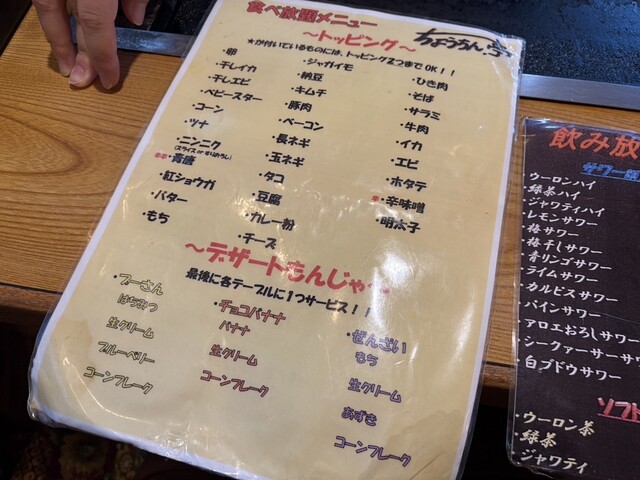 食べ放題メニュー
ちょうちん亭
～トッピング～
★が付いているものには、トッピング2つまでOK！！
・卵
・干しイカ
・干しエビ
・ベビースター
・コーン
・ツナ
・ニンニク
(スライス or すりおろし)
・青唐
・紅ショウガ
・バター
・もち
・ジャガイモ
・納豆
・キムチ
・豚肉
・ベーコン
・長ネギ
・玉ネギ
・タコ
・豆腐
・カレー粉
・チーズ
・ひき肉
・そば
・サラミ
・牛肉
・イカ
・エビ
・ホタテ
・辛味噌
・明太子
～デザートもんじゃ～
最後に各テーブルに1つサービス！！
・プーさん
はちみつ
生クリーム
ブルーベリー
コーンフレーク
・チョコバナナ
バナナ
生クリーム
コーンフレーク
・ぜんざい
もち
生クリーム
あずき
コーンフレーク
飲み放
サワー類
・ウーロンハイ
・緑茶ハイ
・ジャワティハイ
・レモンサワー
・梅サワー
・梅干しサワー
・青リンゴサワー
・ライムサワー
・カルピスサワー
・パインサワー
・アロエおろしサワー
・シークァーサーサワ
・白ブドウサワー
ソフト
・ウーロン茶
・緑茶
・ジャワティ